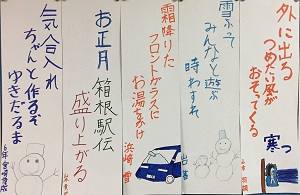 外に出る
つめたい風が
おそってくる
寒っ
雪ふって
みんなと遊ぶ
時わすれ
霜降りた
フロントガラスに
お湯をかけ
浜崎 雪
お正月
箱根駅伝
盛り上がる
気合入れ
ちゃんと作るぞ
ゆきだるま